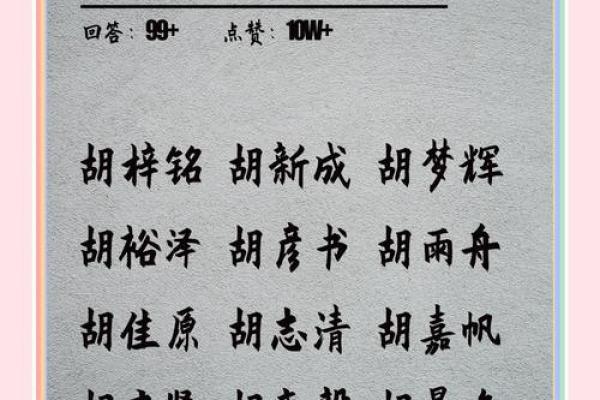 回答：99+ 点赞：10W+
胡梓铭 胡新成 胡梦辉
胡裕泽 胡彦书 胡雨舟
胡佳原 胡志清 胡嘉帆